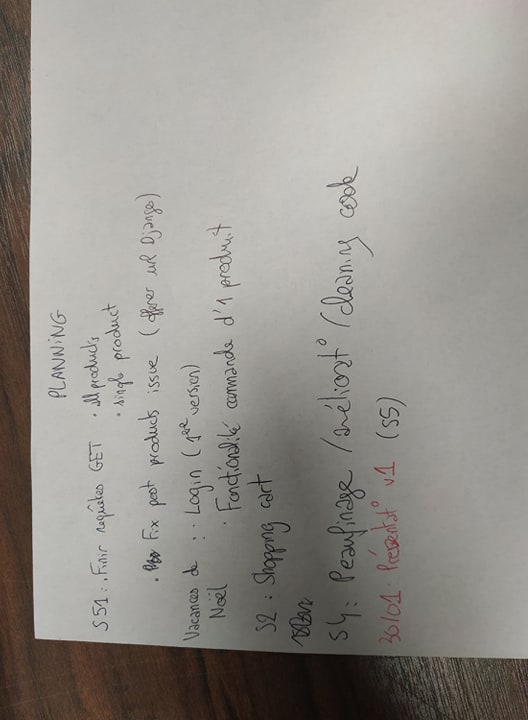 PLANNING
S51 : . Finir requêtes GET • all products
• single product
• Fix post products issue ( url Django)
Vacances de : • Login (1ère version)
Noël • Fonctionalité commande d'1 produit
S2 : Shopping cart
S4 : Peaufinage /améliorat° /cleaning code
30/01 : Présentat° v1 (S5)